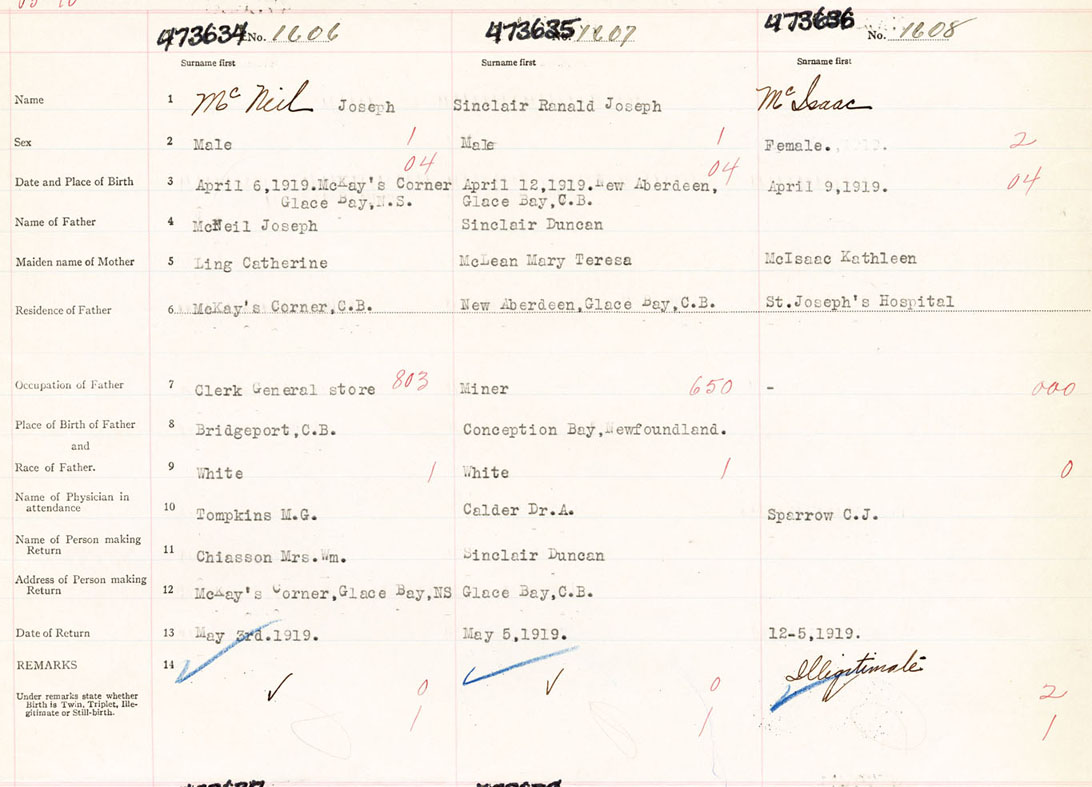 473634 No. 1606 473635 No. 1607 473636 No. 1608
Surname first Surname first Surname first
Name 1 McNeil Joseph Sinclair Ranald Joseph McIsaac
Sex 2 Male 1 Male 1 Female. 2
04 04
Date and Place of Birth 3 April 6,1919.McKay's Corner April 12,1919.New Aberdeen, April 9,1919. 04
Glace Bay,N.S. Glace Bay,C.B.
Name of Father 4 McNeil Joseph Sinclair Duncan
Maiden name of Mother 5 Ling Catherine McLean Mary Teresa McIsaac Kathleen
Residence of Father 6 McKay's Corner,C.B. New Aberdeen,Glace Bay,C.B. St.Joseph's Hospital
Occupation of Father 7 Clerk General store 803 Miner 650 - 000
Place of Birth of Father 8 Bridgeport,C.B. Conception Bay,Newfoundland.
and
Race of Father. 9 White 1 White 1 0
Name of Physician in
attendance 10 Tompkins M.G. Calder Dr.A. Sparrow C.J.
Name of Person making
Return 11 Chiasson Mrs.Wm. Sinclair Duncan
Address of Person making
Return 12 McKay's Corner,Glace Bay,NS Glace Bay,C.B.
Date of Return 13 May 3rd.1919. May 5,1919. 12-5,1919.
REMARKS 14 Illigitimate
Under remarks state whether
Birth is Twin, Triplet, Ille-
gitimate or Still-birth.
0 0 2
1 1 1